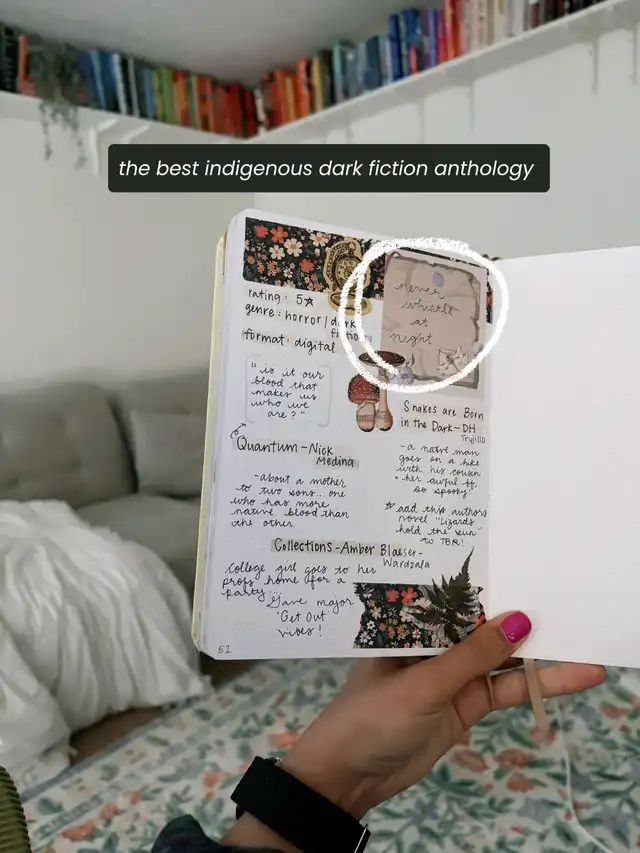 the best indigenous dark fiction anthology
never
whistle
at
night
rating: 5☆
genre: horror/dark
fiction
format: digital
"is it our
blood that
makes us
who we
are?"
Quantum - Nick
Medina
-about a mother
to two sons... one
who has more
native blood than
the other.
Snakes are Born
in the Dark - DH
Trujillo
-a native man
goes on a hike
with his cousin
+ her awful bf.
so spooky!
☆ add this authors
novel "Lizards
hold the sun"
to TBR!
Collections - Amber Blaeser-
Wardzala
College girl goes to her
profs home for a
party...
Gave major
'Get Out'
vibes!
52